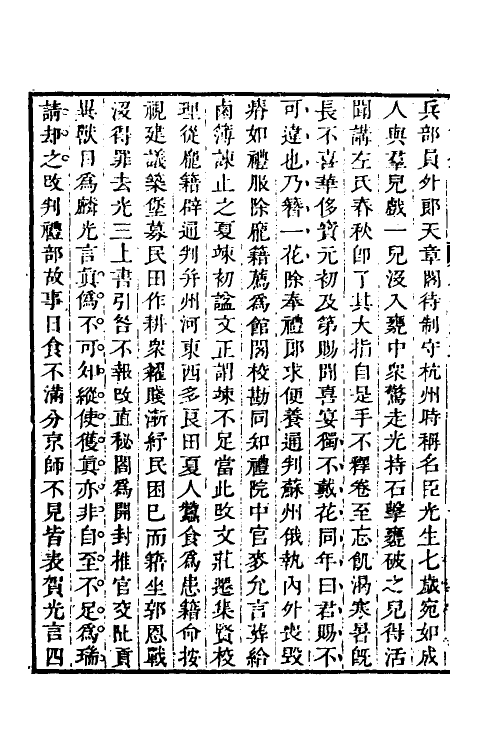 兵部員外郎天章閣待制守杭州時稱名臣光生七歲宛如成
人與羣兒戲一兒沒入甕中衆驚走光持石擊甕破之兒得活
聞講左氏春秋卽了其大指自是手不釋卷至忘飢渴寒暑旣
長不喜華侈寶元初及第賜聞喜宴獨不戴花同年曰君賜不
可違也乃簪一花除奉禮郎求便養通判蘇州俄執內外喪毀
瘠如禮服除龐籍薦爲館閣校勘同知禮院中官麥允言葬給
鹵簿諫止之夏竦初諡文正謂竦不足當此改文莊遷集賢校
理從龐籍辟通判并州河東西多良田夏人蠶食爲患籍命按
視建議築堡募民田作耕衆糴賤漸紓民困已而籍坐郭恩戰
沒得罪去光三上書引咎不報改直秘閣爲開封推官交阯貢
異獸目爲麟光言眞僞不可知縱使獲眞亦非自至不足爲瑞
請却之改判禮部故事日食不滿分京師不見皆表賀光言四